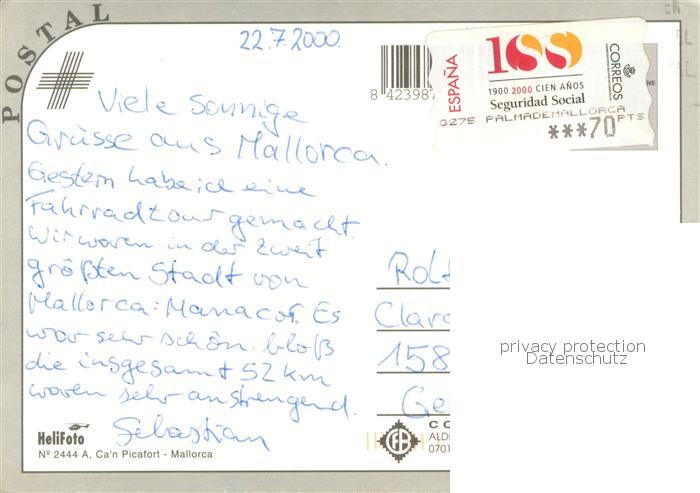 POSTAL
22.7.2000.
Viele Sonnige
Grüsse aus Mallorca.
Gestern habe ich eine
Fahrradtour gemacht.
Wir waren in der zweit
größten Stadt von
Mallorca: Manacor. Es
war sehr schön. bloß
die insgesamt 52 km
waren sehr anstrengend.
Sebastian
HeliFoto
Nº 2444 A, Ca'n Picafort - Mallorca
8 423987
ESPAÑA
100
CORREOS
1900 2000 CIEN AÑOS
Seguridad Social
3275 PALMADEMALLORCA
***70 PTS
NE
158
privacy protection
Datenschutz
CO
ALD
0701